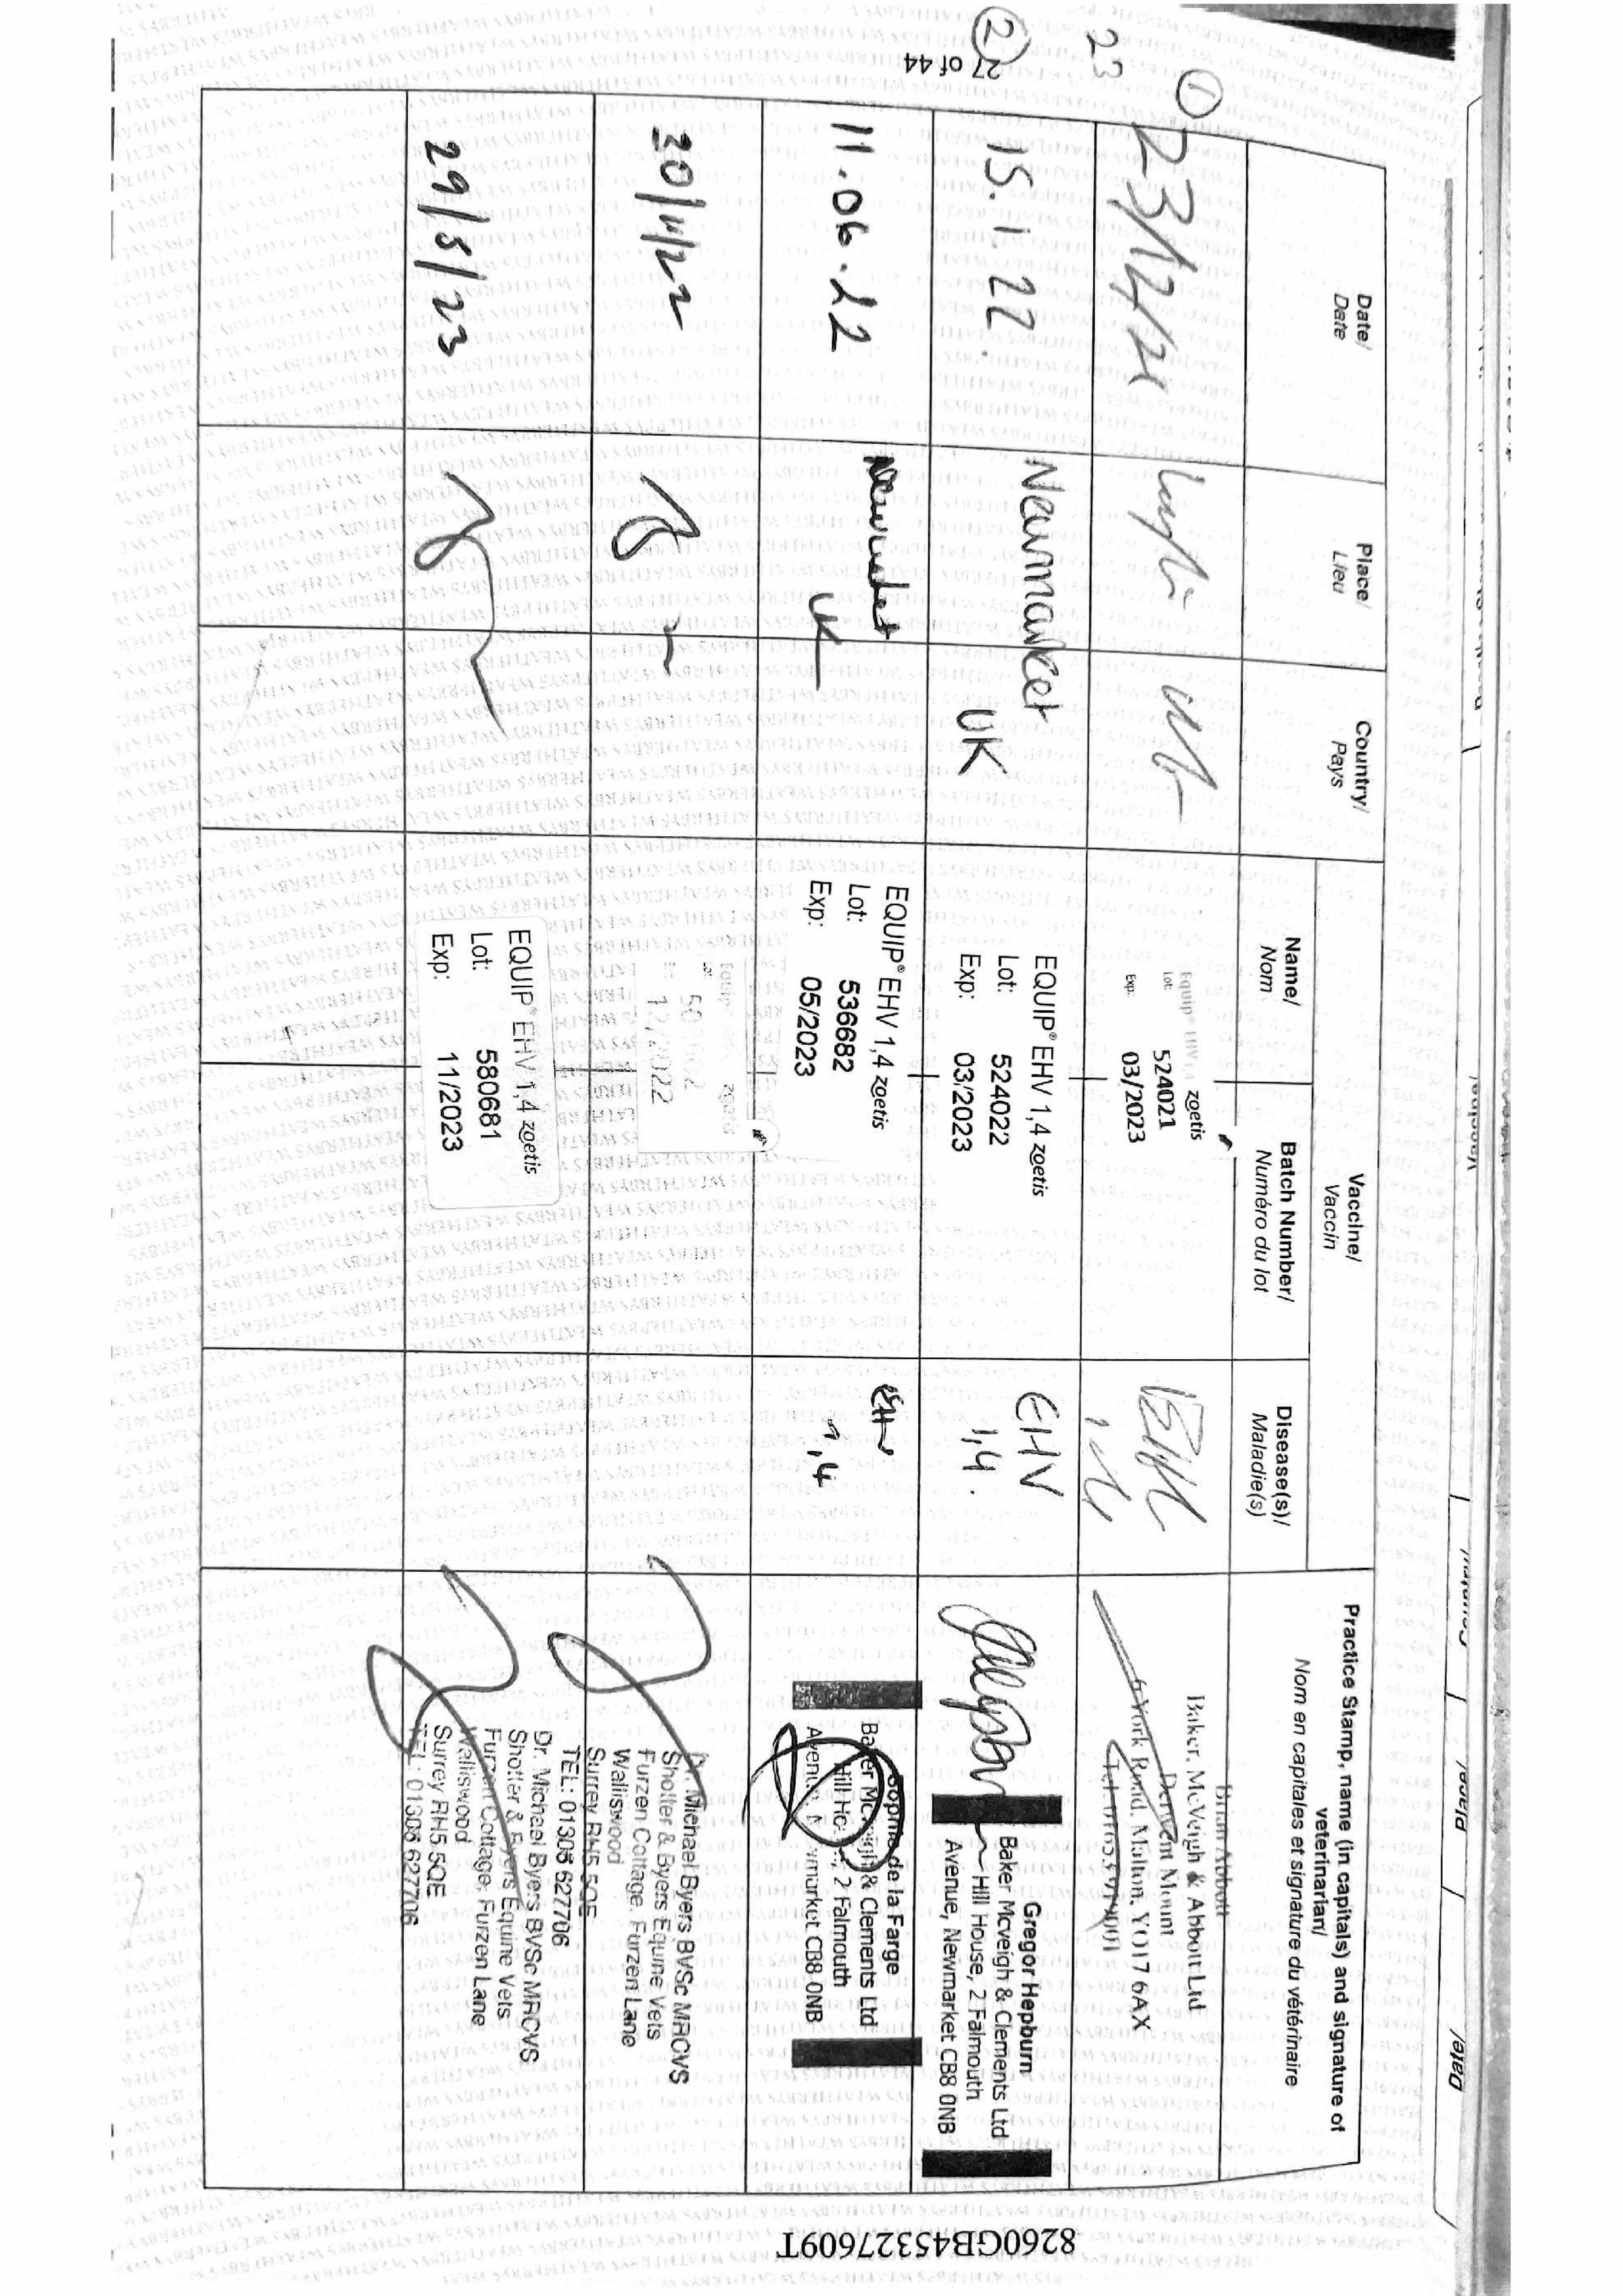 Date/
Date
Place/
Lieu
Country/
Pays
Vaccine/
Vaccin
Name/
Nom
Batch Number/
Numéro du lot
Disease(s)/
Maladie(s)
Practice Stamp, name (in capitals) and signature of
veterinarian/
Nom en capitales et signature du vétérinaire
1
23
Equip® EHV 1,4 zoetis
Lot: 524021
Exp: 03/2023
Brian Abbott
Baker, McVeigh & Abbott Ltd
Derwent Mount
6 York Road, Malton, YO17 6AX
15.1.22.
Newmarket
UK
EQUIP® EHV 1,4 zoetis
Lot: 524022
Exp: 03/2023
EHV
1,4.
Gregor Hepburn
Baker Mcveigh & Clements Ltd
Hill House, 2 Falmouth
Avenue, Newmarket CB8 0NB
2
11.06.22
Newmarket
UK
EQUIP® EHV 1,4 zoetis
Lot: 536682
Exp: 05/2023
EHV
1,4
Sophie de la Farge
Baker Mcveigh & Clements Ltd
Hill House, 2 Falmouth
Avenue, Newmarket CB8 0NB
30/11/22
Equip® zoetis
Lot:
12/2022
Dr. Michael Byers BVSc MRCVS
Shotter & Byers Equine Vets
Furzen Cottage, Furzen Lane
Walliswood
Surrey RH5 5QE
TEL: 01306 627706
29/5/23
EQUIP® EHV 1,4 zoetis
Lot: 580681
Exp: 11/2023
Dr. Michael Byers BVSc MRCVS
Shotter & Byers Equine Vets
Furzen Cottage, Furzen Lane
Walliswood
Surrey RH5 5QE
TEL: 01306 627706
27 of 44
8260GB45327609T